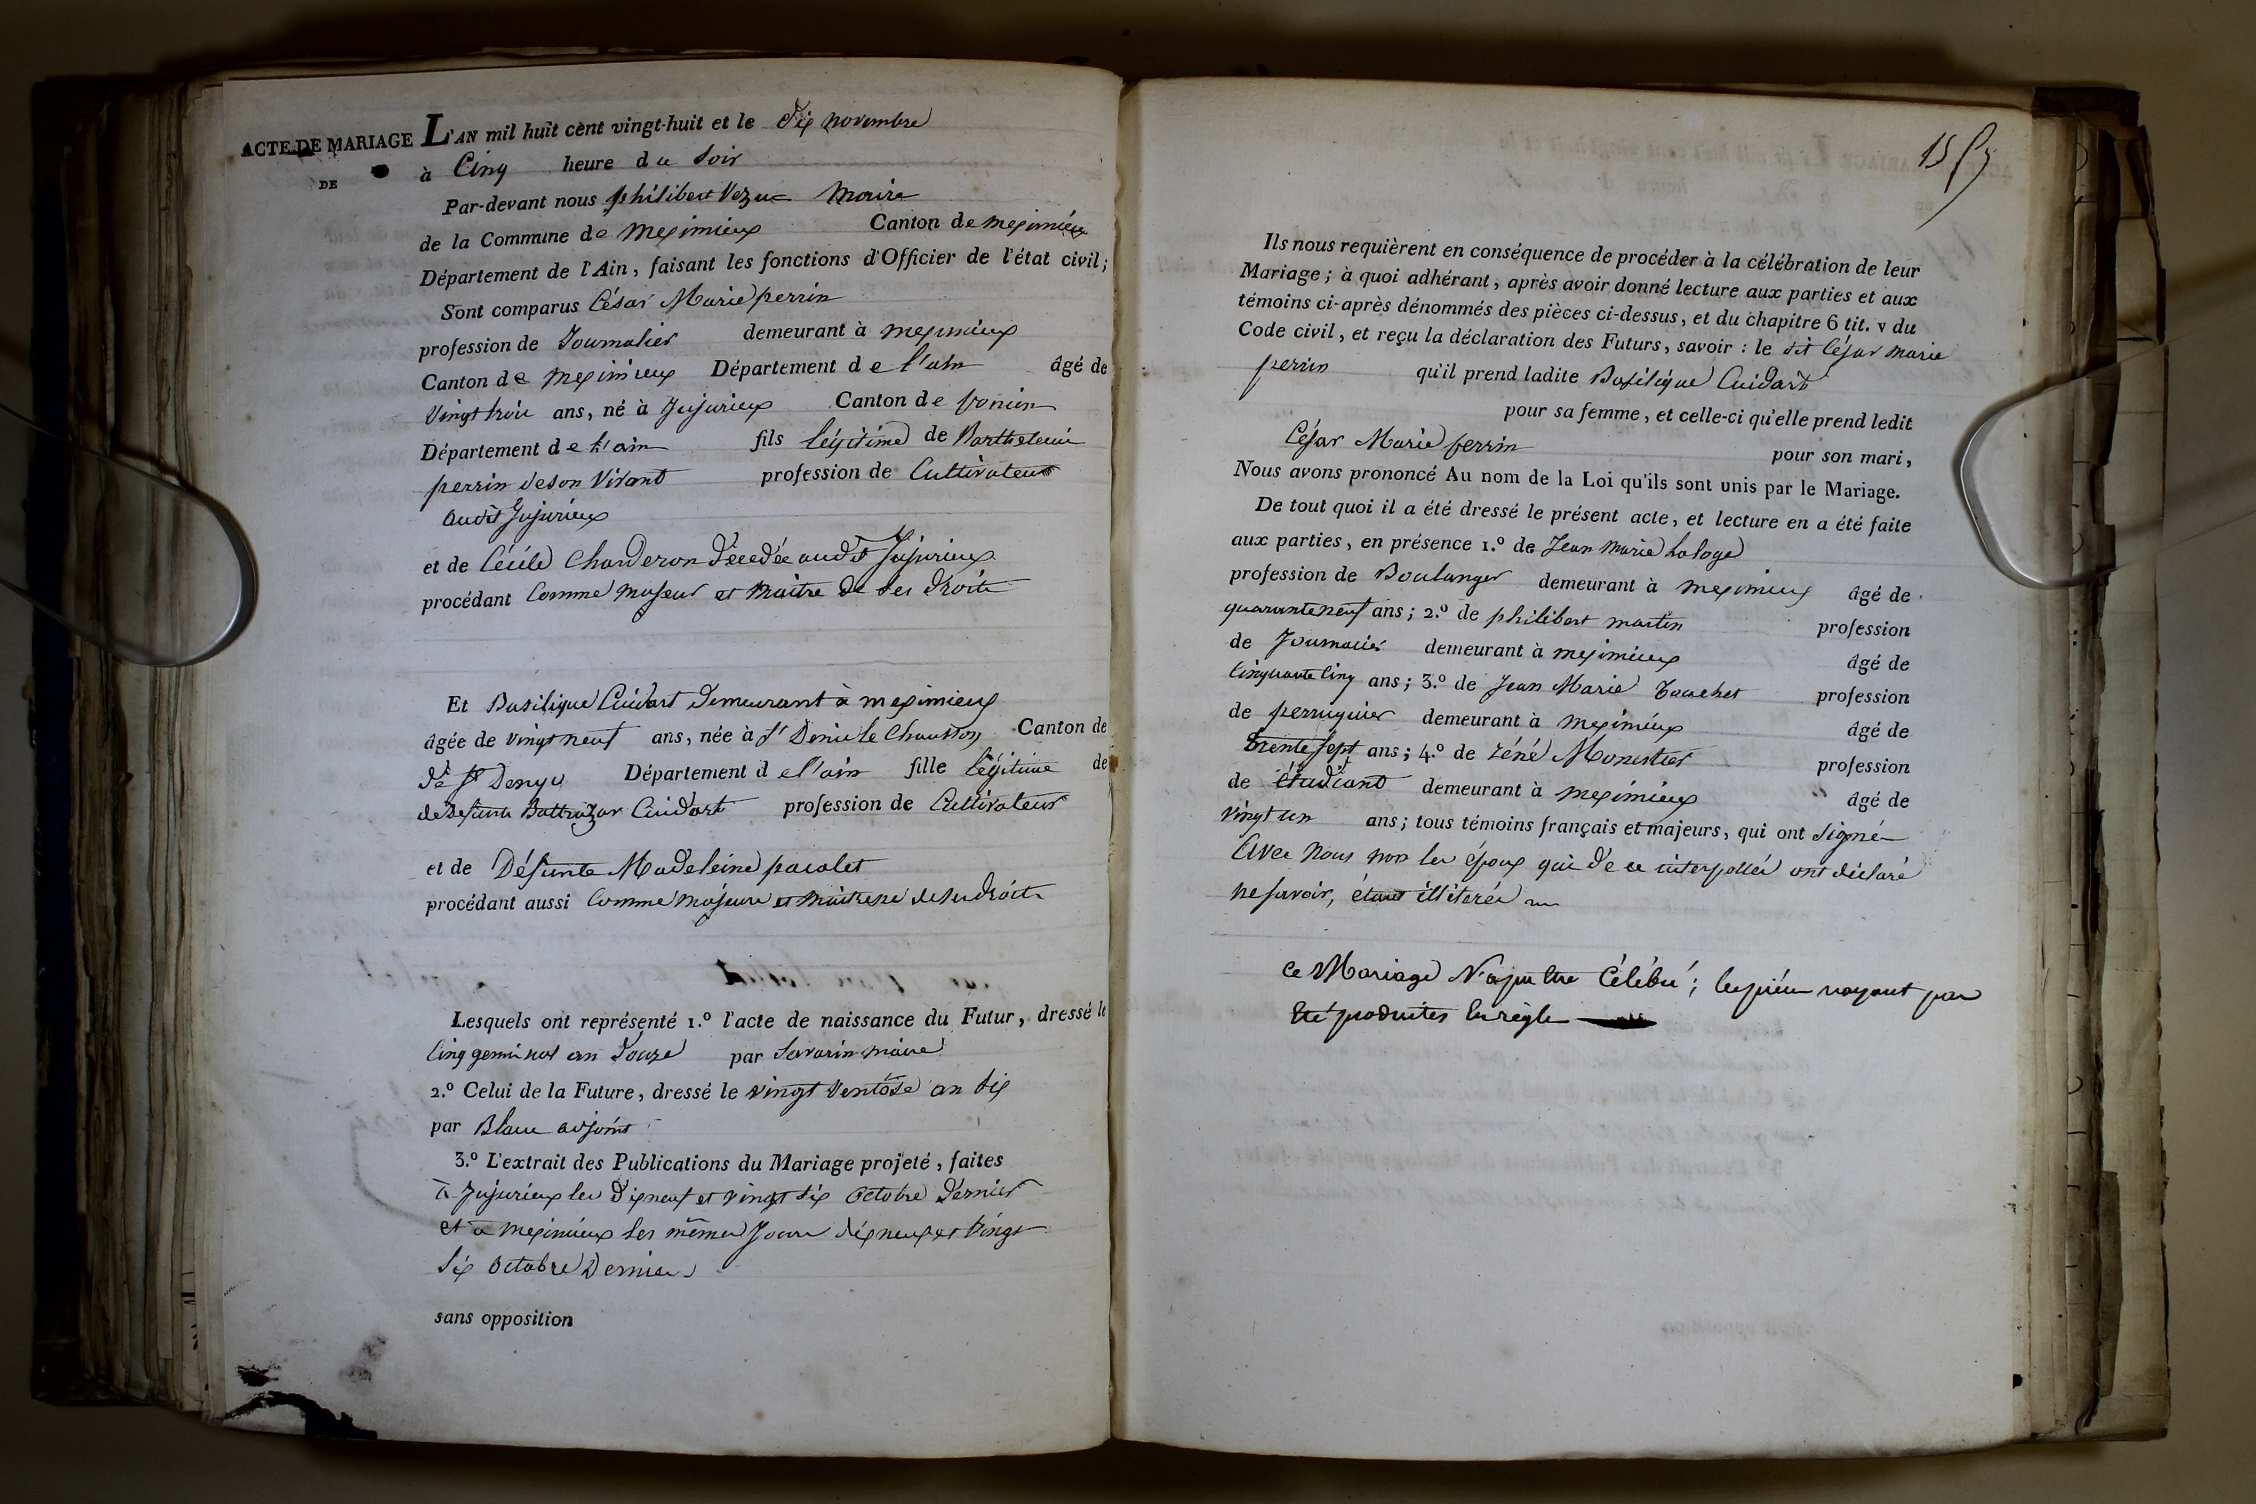 ACTE DE MARIAGE L'AN mil huit cent vingt-huit et le dix novembre
DE
à Cinq heure du Soir
Par-devant nous philibert Vezu Maire
de la Commune de Meximieux Canton de meximieux
Département de l'Ain, faisant les fonctions d'Officier de l'état civil;
Sont comparus César Marie perrin
profession de Journalier demeurant à meximieux
Canton de meximieux Département de l'ain âgé de
Vingt trois ans, né à Jujurieux Canton de poncin
Département de l'ain fils légitime de Barthelemi
perrin de son Vivant profession de Cultivateur
audit Jujurieux
et de Cécile Charderon décedée audit Jujurieux
procédant Comme majeur et Maitre de ses droits
Et Basilique Cuidart demeurant à meximieux
âgée de vingt neuf ans, née à St Denis le Chausson Canton de
de St Denys Département de l'ain fille légitime de
de defunt Baltazar Cuidart profession de Cultivateur
et de Défunte Madeleine pacolet
procédant aussi Comme majeure et maitresse de ses droits
Lesquels ont représenté 1.º l'acte de naissance du Futur, dressé le
Cinq germinal an douze par Savarin maire
2.º Celui de la Future, dressé le vingt Ventôse an dix
par Blanc adjoint
3.º L'extrait des Publications du Mariage projeté, faites
à Jujurieux les dix neuf et vingt six Octobre dernier
et à meximieux les mêmes Jours dix neuf et vingt
six Octobre Dernier
sans opposition
Ils nous requièrent en conséquence de procéder à la célébration de leur
Mariage; à quoi adhérant, après avoir donné lecture aux parties et aux
témoins ci-après dénommés des pièces ci-dessus, et du chapitre 6 tit. v du
Code civil, et reçu la déclaration des Futurs, savoir: le dit César marie
perrin qu'il prend ladite Basilique Cuidart
pour sa femme, et celle-ci qu'elle prend ledit
César Marie perrin pour son mari,
Nous avons prononcé Au nom de la Loi qu'ils sont unis par le Mariage.
De tout quoi il a été dressé le présent acte, et lecture en a été faite
aux parties, en présence 1.º de Jean Marie Laloge
profession de Boulanger demeurant à meximieux âgé de
quarante neuf ans; 2.º de philibert martin profession
de Journalier demeurant à meximieux âgé de
Cinquante Cinq ans; 3.º de Jean Marie profession
de perruquier demeurant à meximieux âgé de
trente sept ans; 4.º de réné Monestier profession
de étudiant demeurant à meximieux âgé de
vingt un ans; tous témoins français et majeurs, qui ont signé
Avec Nous non les époux qui de ce interpellés ont déclaré
ne savoir, étant illiterés
Ce Mariage N'a pu être Célébré; les pièces n'ayant pas
Eté produites En règle